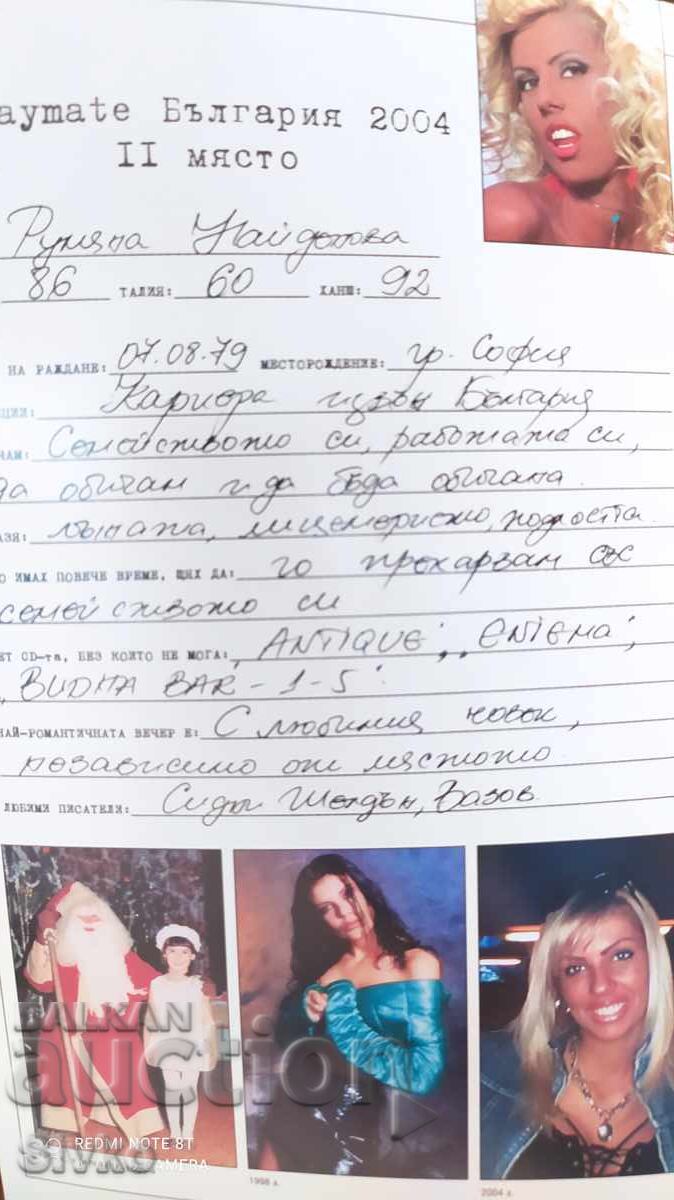 aymate България 2004
II място
Румяна Найденова
86 ТАЛИЯ: 60 ХАНШ: 92
НА РАЖДАНЕ: 07.08.79 МЕСТОРОЖДЕНИЕ: гр. София
ЦИИ: Кариера извън България
ЧАМ: Семейството си, работата си,
да обичам и да бъда обичана.
АЗЯ: лъжата, лицемерието, подлостта
О ИМАХ ПОВЕЧЕ ВРЕМЕ, ЩЯХ ДА: го прекарвам със
семейството си
ЕТ CD-та, БЕЗ КОЯТО НЕ МОГА: "ANTIQUE", "ENIGMA",
"BUDHA BAR - 1-5".
НАЙ-РОМАНТИЧНАТА ВЕЧЕР Е: С любимия човек,
независимо от мястото.
ЛЮБИМИ ПИСАТЕЛИ: Сидни Шелдън, Вазов.
BALKAN
auction
REDMI NOTE 8T
CAMERA
1998 г.
2004 г.